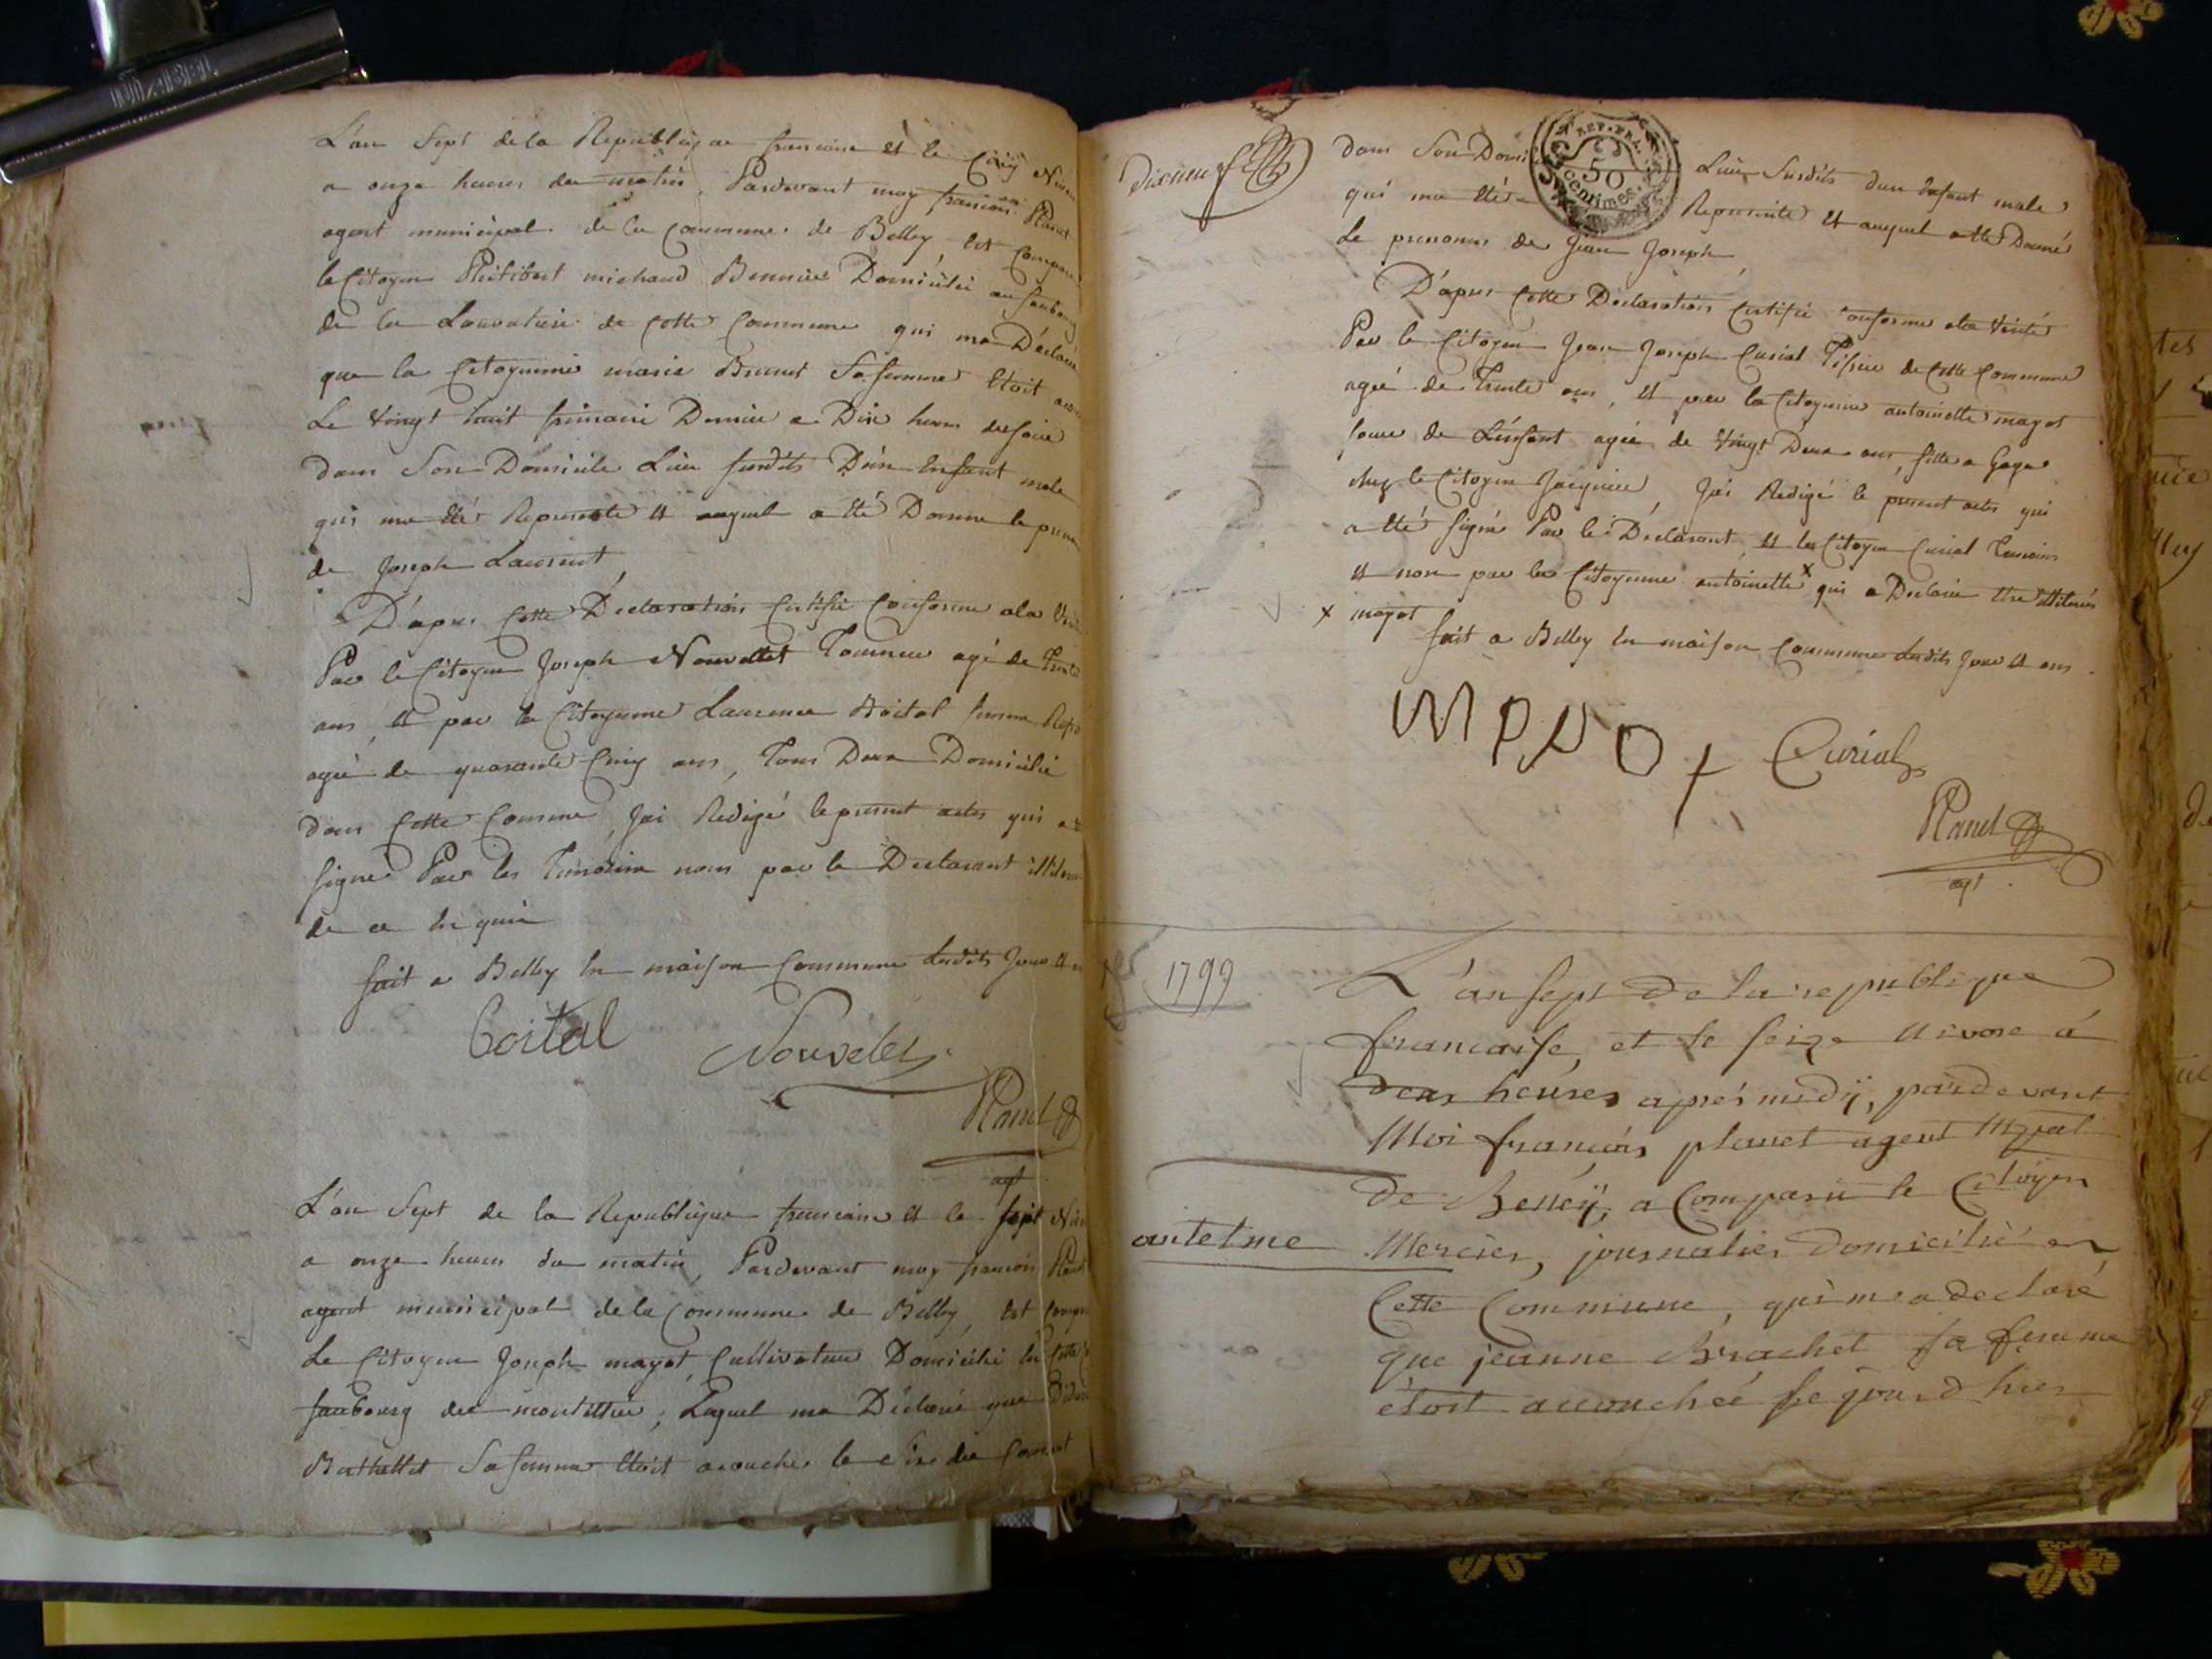 L'an Sept de la Republique francaise et le Cinq
a onze heures du matin, Pardevant moy francois Planet
agent municipal de la Commune de Belley, Est Compar
le Citoyen Philibert michaud Domicilié au faubourg
de la de Cette Commune qui ma Déclaré
que la Citoyenne marie Brunet Sa femme Etoit
Le Vingt huit frimaire Dernier a Dix heures du soir
dans Son Domicile Lieu susdits D'un Enfant male
qui ma Eté Representé et auquel a Eté Donné le
de Joseph Laurent
D'apres Cette Déclaration Certifié Conforme a la
Par le Citoyen Joseph Nouvellet Tourneur agé de
ans, et par la Citoyenne Laurence Boital femme
agée de quarante Cinq ans, Tous Deux Domicilié
dans Cette Comune, Jai Redigé le present actes qui a
signé Par les Temoins nom par le Declarant
de ce En quis
fait a Belley En maison Commune Lesdits Jour et
Boital Nouvelet
Planet
agt
L'an Sept de la Republique francaise et le Sept
a onze heures du matin, Pardevant moy francois
agent municipal de la Commune de Belley, Est
Le Citoyen Joseph mayot, Cultivateur Domicilié En Cette
faubourg du, Laquel ma Déclaré que
Berthellet Sa femme Etoit acouché le du Courant
Dix neuf
REP. FRA.
50
centimes
dans Son Domi Lieu Susdits d'un Enfant male
qui ma Eté Representé et auquel a Eté Donné
Le prenomes de Jean Joseph
D'apres Cette Declaration Certifié Conforme a la Verité
Par le Citoyen Jean Joseph Curial de Cette Commune
agé de Trente ans, et par la Citoyenne antoinette mayot
soeur de L'enfant agée de Vingt Deux ans, fille a Gage
chez le Citoyen Jacquier, Jai Redigé le present actes qui
a Eté signé Par le Déclarant, et le Citoyen Curial Temoins
et non par la Citoyenne antoinette x qui a Declaré Etre
x mayot
fait a Belley En maison Commune Lesdits Jour et ans
Curial
Planet
agt
1799
L'an sept de la republique
francaise, et le seize nivose á
deux heures aprés midÿ, pardevant
Moi francois planet agent Mpal
De Belleÿ, a Comparu le Citoÿen
antelme Mercier, journalier Domicilié en
Cette Commune, qui m'a declaré
que jeanne Brachet sa femme
étoit accouchéé le jour d'hier